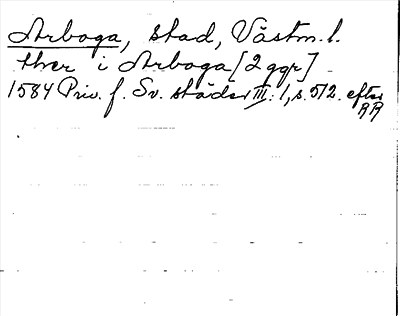 Arboga, stad, Västm. l.
ther i Arboga [2 ggr]
1584 Priv. f. Sv. städer III:1, s. 512. efter
RR